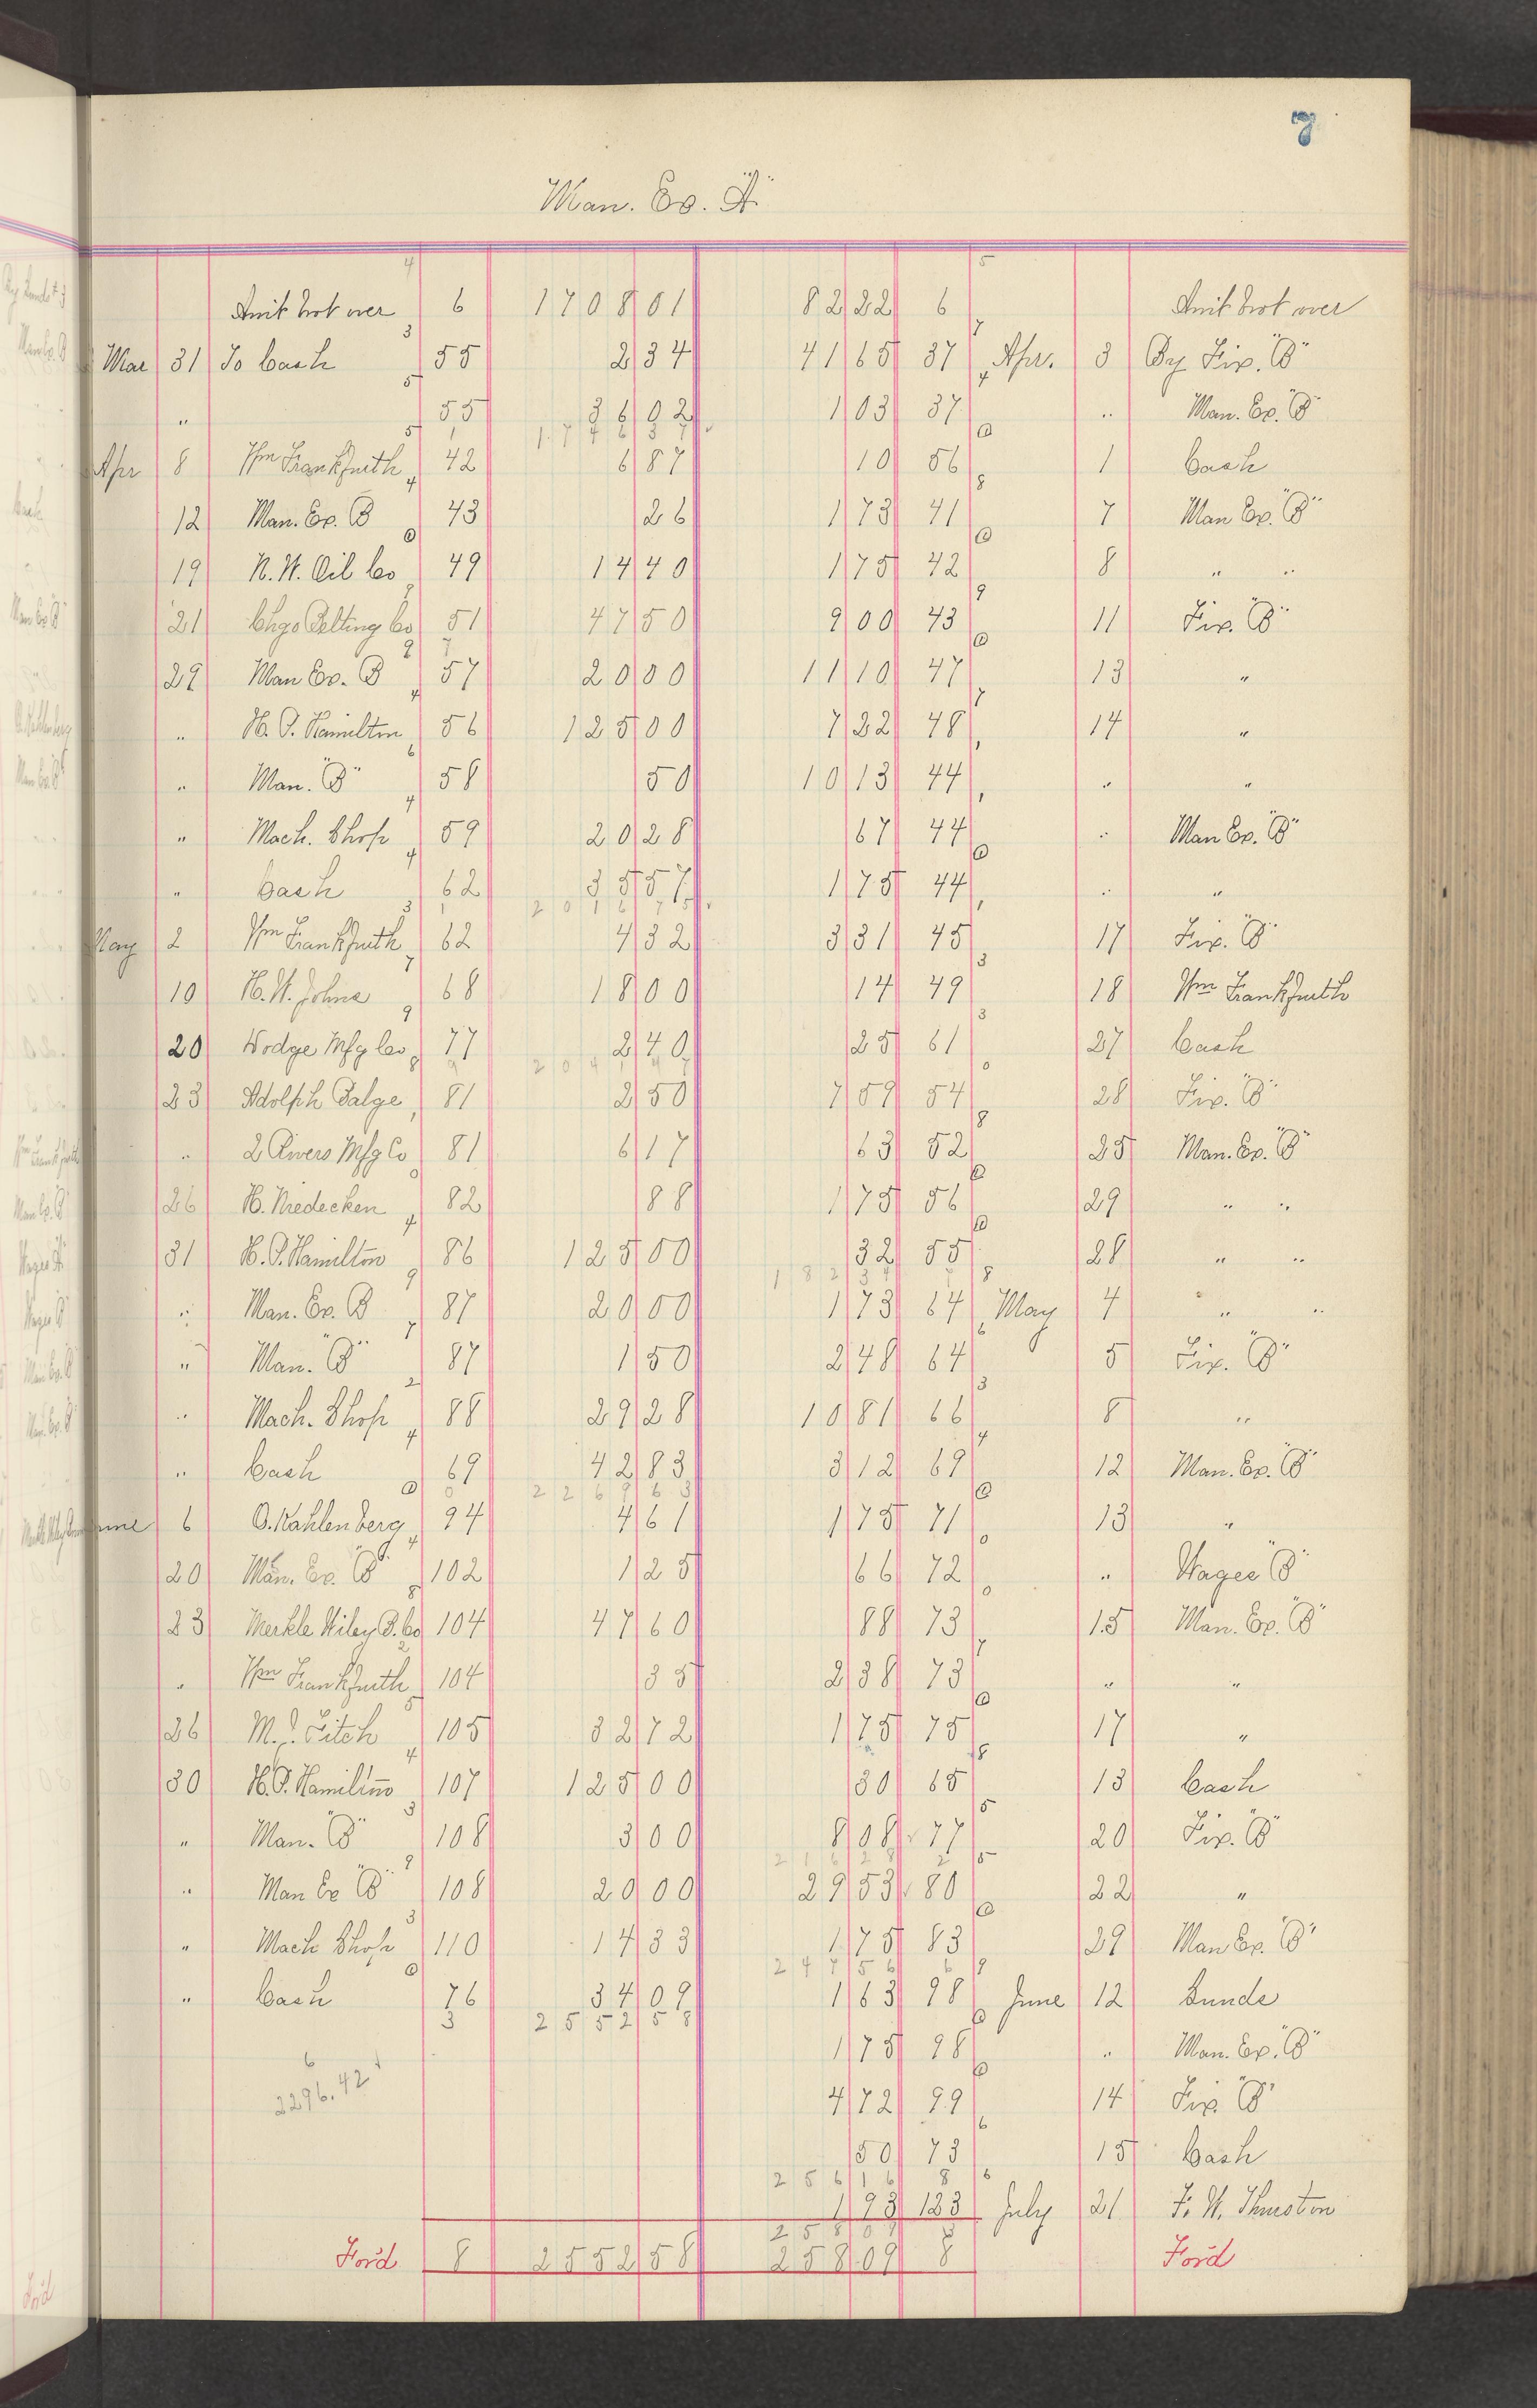 7
Man. Ex. "A"
Amt brot over 6 1708 01 82 22 6 Amt brot over
Mar 31 To Cash 55 2 34 41 65 37 Apr. 3 By Fix. "B"
" 55 36 02 1 03 37 " Man. Ex. "B"
1746 37
Apr 8 Wm Frankfurth 42 6 87 10 56 1 Cash
12 Man. Ex. B 43 26 1 73 41 7 Man Ex. "B"
19 N. W. Oil Co 49 14 40 1 75 42 8 " "
21 Chgo Belting Co 51 47 50 9 00 43 11 Fix. "B"
29 Man Ex. B 57 20 00 11 10 47 13 "
" H. P. Hamilton 56 125 00 7 22 48 14 "
" Man. "B" 58 50 10 13 44 " "
" Mach. Shop 59 20 28 67 44 " Man Ex. "B"
" Cash 62 35 57 1 75 44 " "
2016 75
May 2 Wm Frankfurth 62 4 32 3 31 45 17 Fix. "B"
10 H. W. Johns 68 18 00 14 49 18 Wm Frankfurth
20 Dodge Mfg Co 77 2 40 25 61 27 Cash
2041 47
23 Adolph Salge 81 2 50 7 59 54 28 Fix. "B"
" 2 Rivers Mfg Co 81 6 17 63 52 25 Man. Ex. "B"
26 H. Niedecken 82 88 1 75 56 29 " "
31 H. P. Hamilton 86 125 00 32 55 28 " "
" Man. Ex. B 87 20 00 1 73 64 May 4 " "
" Man. "B" 87 1 50 2 48 64 5 Fix. "B"
" Mach. Shop 88 29 28 10 81 66 8 "
" Cash 69 42 83 3 12 69 12 Man. Ex. "B"
2269 63
June 6 O. Kahlenberg 94 4 61 1 75 71 13 "
20 Man. Ex. "B" 102 1 25 66 72 " Wages "B"
23 Merkle Wiley B. Co 104 47 60 88 73 15 Man. Ex. "B"
" Wm Frankfurth 104 35 2 38 73 " "
26 M. J. Fitch 105 32 72 1 75 75 17 "
30 H. P. Hamilton 107 125 00 30 65 13 Cash
" Man. "B" 108 3 00 8 08 77 20 Fix. "B"
" Man Ex "B" 108 20 00 29 53 80 22 "
" Mach Shop 110 14 33 1 75 83 29 Man Ex. "B"
247 56
" Cash 76 34 09 1 63 98 June 12 Sunds
2552 58
1 75 98 " Man. Ex. "B"
2296.42
4 72 99 14 Fix. "B"
50 73 15 Cash
256 16
1 93 123 July 21 F. W. Thurston
258 09
Ford 8 2552 58 258 09 8 Ford